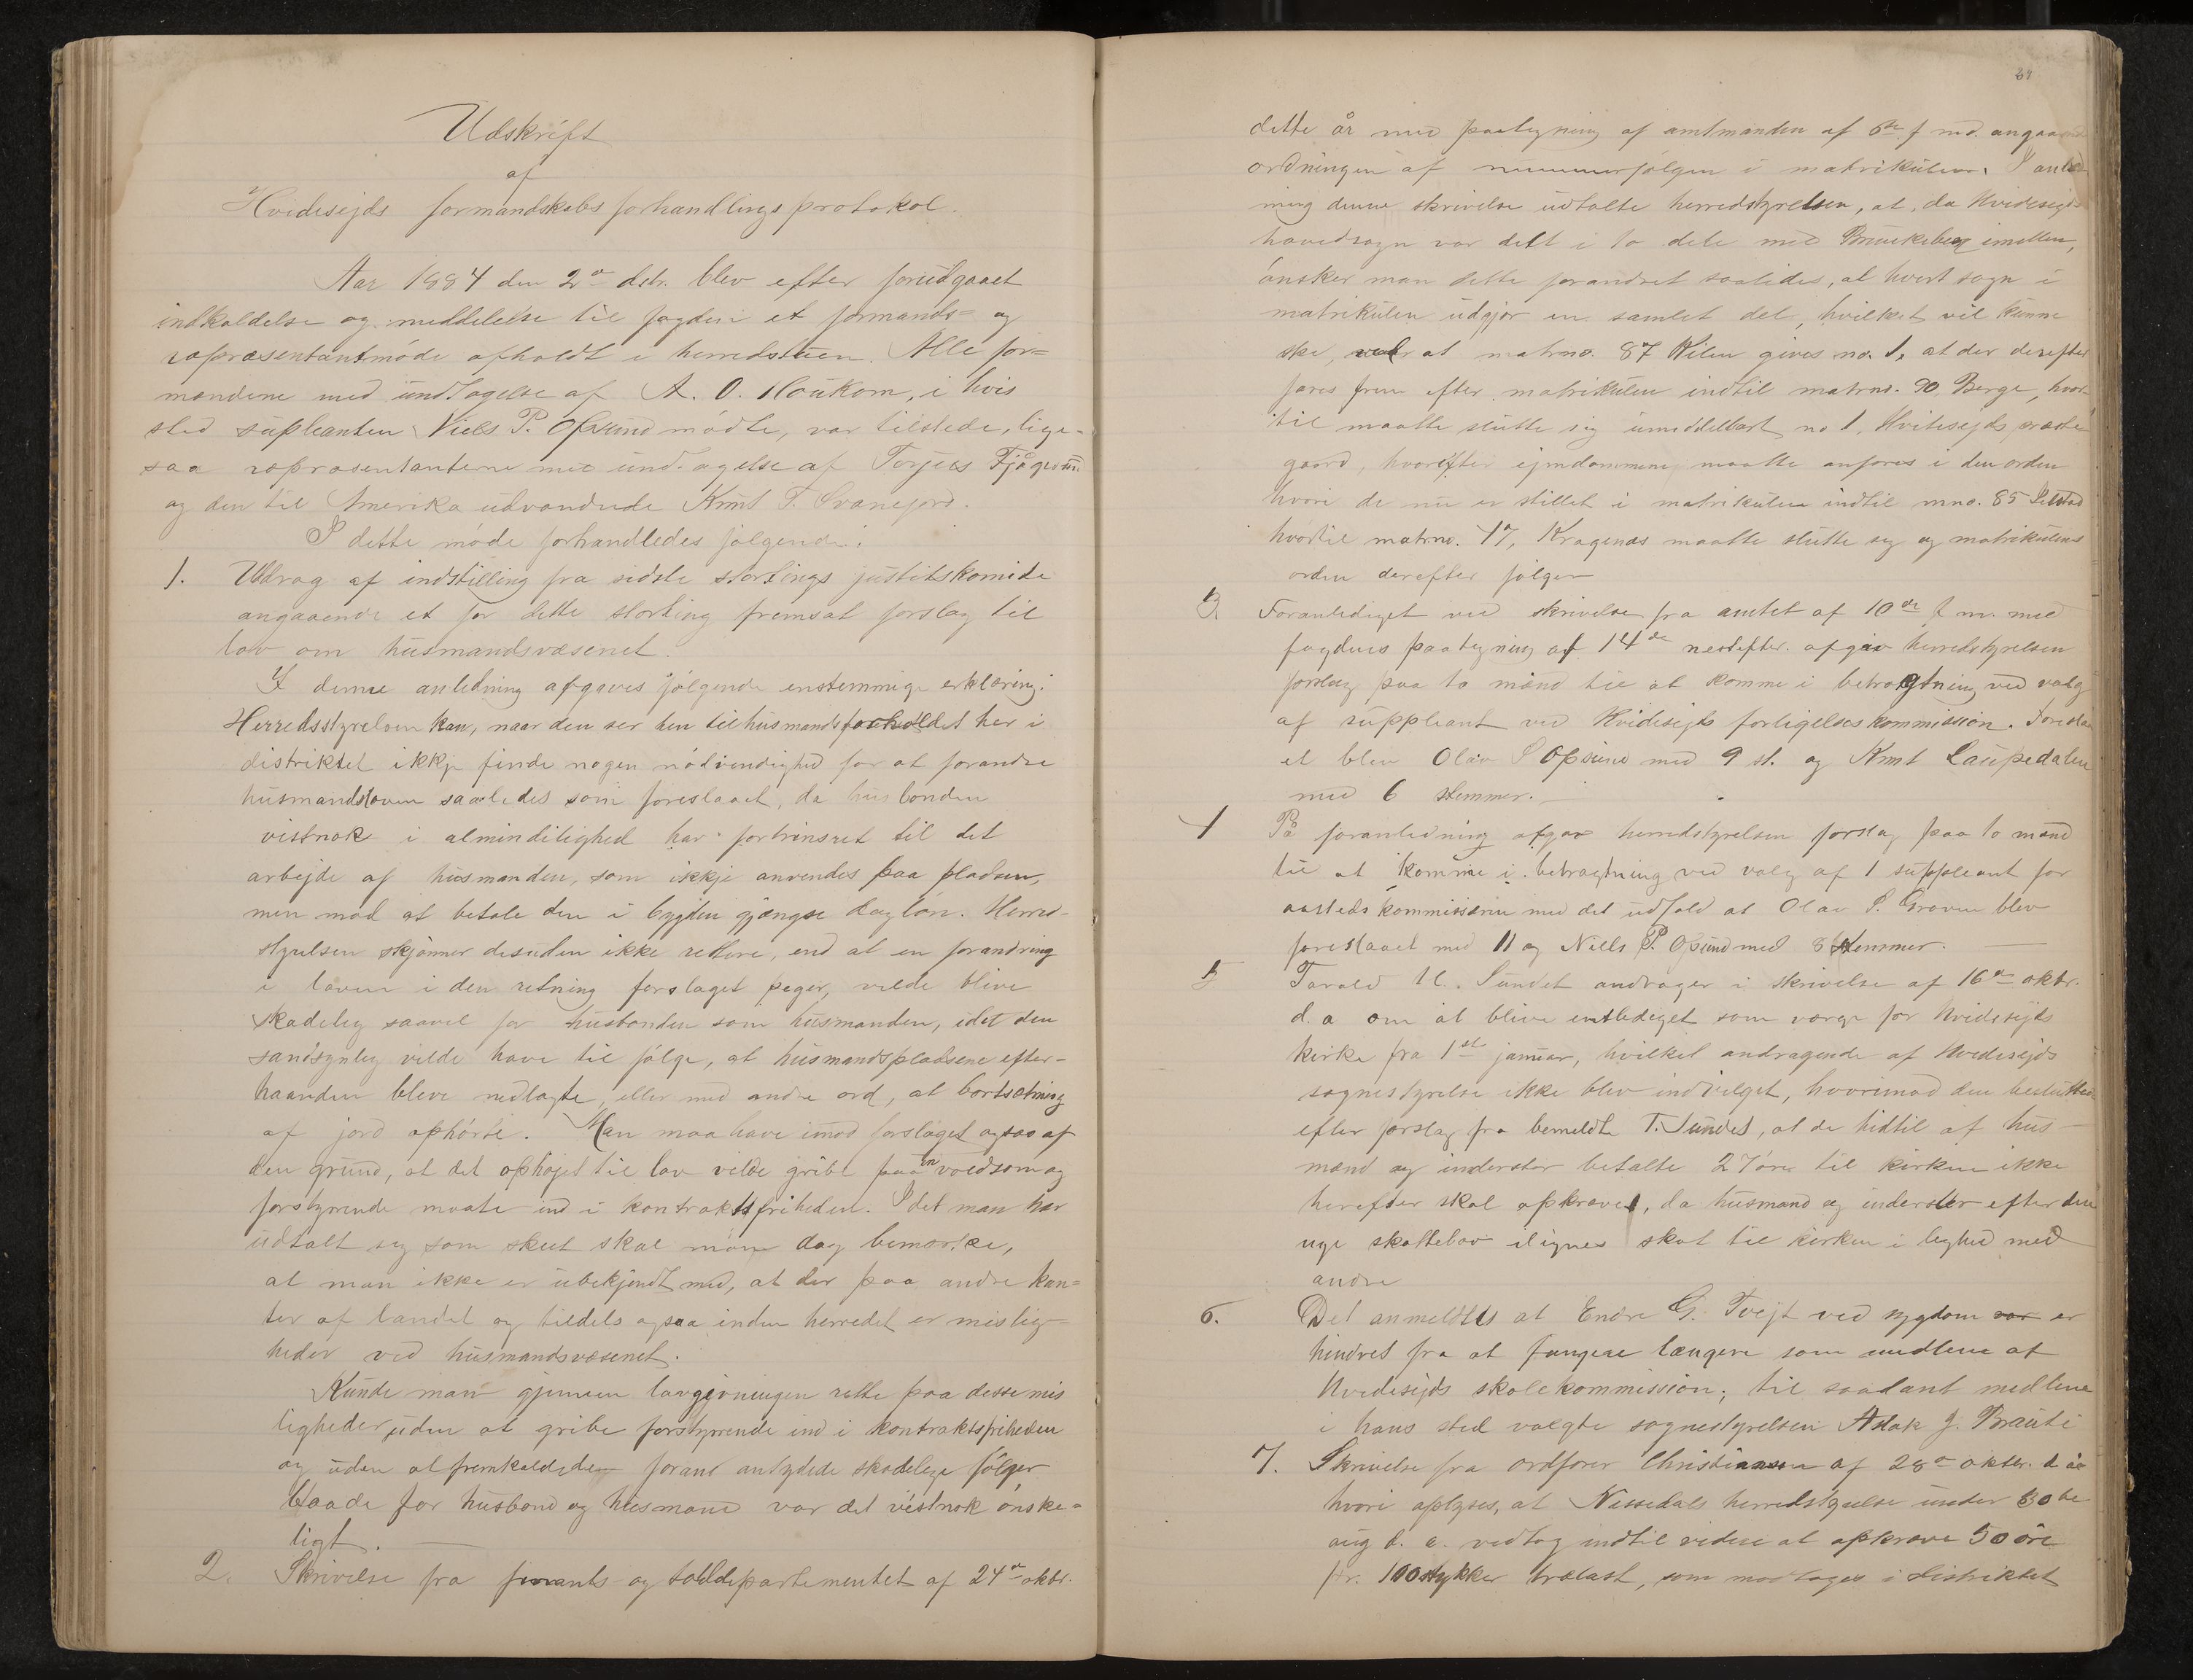 Udskrift
af
Hvidesejds formandskabs forhandlingsprotokol.
Aar 1884 den 2den dcbr. blev efter forudgaaet
indkaldelse og meddelelse til fogden et formands- og
repræsentantmøde afholdt i herredstuen. Alle for-
mændene med undtagelse af A. O. Haukom, i hvis
sted supleanten Niels P. Opsund mødte, var tilstede, lige-
saa repræsentanterne med undtagelse af Torjus
og den til Amerika udvandrede Knut T. Svanejord.
I dette møde forhandledes følgende:
1. Uddrag af indstilling fra sidste stortings justitskomite
angaaende et for dette storting fremsat forslag til
lov om husmandsvæsenet.
I denne anledning afgaves følgende enstemmige erklæring:
Herredsstyrelsen kan, naar den ser hen til husmandsforholdet her i
distriktet ikkje finde nogen nødvendighed for at forandre
husmandsloven saaledes som foreslaaet, da husbonden
vistnok i almindelighed har fortrinsret til det
arbejde af husmanden, som ikkje anvendes paa pladsen,
men mod at betale den i bygden gjængse dagløn. Herred-
styrelsen skjønner desuden ikke rettere, end at en forandring
i loven i den retning forslaget peger, vilde blive
skadelig saavel for husbonden som husmanden, idet den
sandsynlig vilde have til følge, at husmandspladsene efter-
haanden bleve nedlagte, eller med andre ord, at bortsætning
af jord ophørte. Man maa have imod forslaget ogsaa af
den grund, at det ophøjet til lov vilde gribe paa en voldsom og
forstyrrende maate ind i kontraktsfriheden. Idet man har
udtalt sig som skeet skal man dog bemærke,
at man ikke er ubekjendt med, at der paa andre kan-
ter af landet og tildels ogsaa inden herredet er mislig-
heder ved husmandsvæsenet.
Kunde man gjennem lovgivningen rette paa desse mis
ligheder uden at gribe forstyrrende ind i kontraktsfriheden
og uden at fremkalde den foran antydede skadelige følger
baade for husbond og husmand var det vistnok ønske-
ligt.
2. Skrivelse fra finants- og tolddepartementet af 24de oktbr.
dette år med paategning af amtmanden af 6te f. md. angaaende
ordningen af nummerfølgen i matrikulen. I anled
ning denne skrivelse udtalte herredstyrelsen, at, da Hvidesejds
hovedsogn var delt i to dele med Brunkeberg imellem,
ønsker man dette forandret saaledes, at hvert sogn i
matrikulen udgjør en samlet del, hvilket vil kunne
ske, ved at matrno. 87 Kilen gives no. 1, at der derefter
fares frem efter matrikulen indtil matrno. 90 Berge, hvor-
til maatte slutte sig umiddelbart no 1, Hvitesejds præste
gaard, hvorefter ejendommene maatte anføres i den orden
hvori de nu er stillet i matrikulen indtil mno. 85
hvortil matrno. 47, Kragenæs maatte slutte sig og matrikulens
orden derefter følger
3. Foranlediget ved skrivelse fra amtet af 10de f. m. med
fogdens paategning af 14de nestefter. afgav herredstyrelsen
forslag paa to mænd til at komme i betragtning ved valg
af suppleant ved Hvidesejds forligelseskommission. Foreslaa
et blev Olav S Opsund med 9 st. og Knut Laupedalen
med 6 stemmer.
4 På foranledning afgav herredstyrelsen forslag paa to mænd
til at komme i betragtning ved valg af 1 suppleant for
aastedskommissærer med det udfald at Olav S. Groven blev
foreslaaet med 11 og Niels P. Opsund med 8 stemmer.
5 Tarald H. Sundet andrager i skrivelse af 16de oktbr.
d. a om at blive entlediget som værge for Hvidesejds
kirke fra 1ste januar, hvilket andragende af Hvidesejds
sognestyrelse ikke blev indvilget, hvorimod den besluttede
efter forslag fra bemeldte T. Sundet, at de hidtil af hus-
mænd og inderster betalte 27 øre til kirken ikke
herefter skal opkræves, da husmænd og inderster efter den
nye skattelov ilignes skat til kirken i lighed med
andre
6. Det anmeldtes at Endre G. Tvejt ved sygdom var er
hindret fra at fungere længere som medlem af
Hvidesejds skolekommission; til saadant medlem
i hans sted valgte sognestyrelsen Aslak J. Brauti
7. Skrivelse fra ordfører Christiansen af 28de oktbr. d år
hvori oplyses, at Nissedals herredstyrelse under 30te
aug d. a. vedtog indtil videre at opkræve 50 øre
pr. 100 stykker trælast, som modtages i distriktet